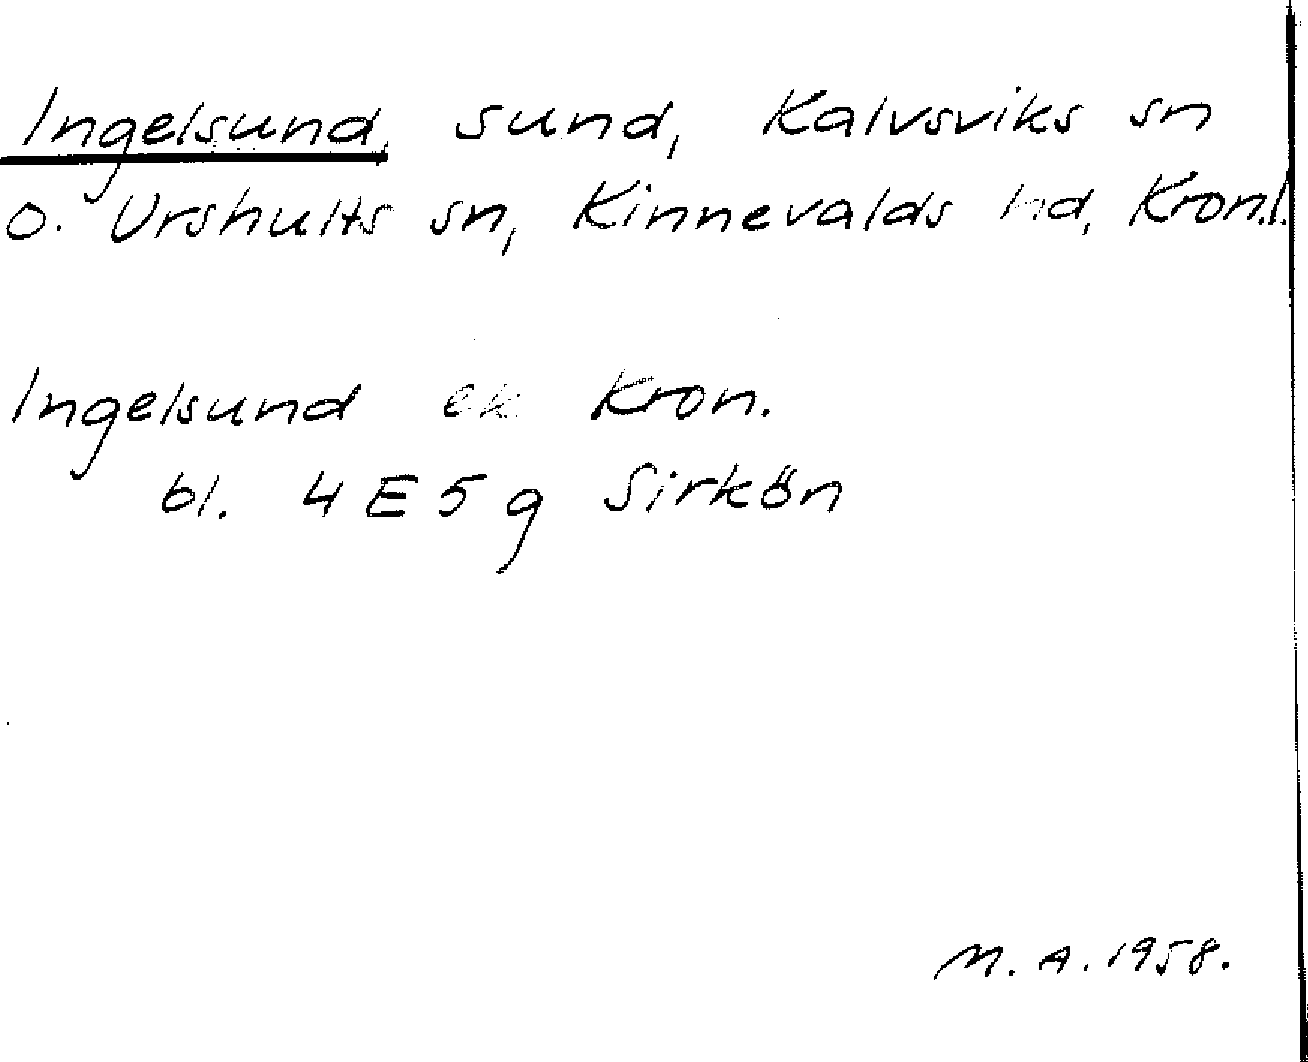 Ingelsund, sund, Kalvsviks sn
o. Urshults sn, Kinnevalds hd, Kron.l.
Ingelsund ek Kron.
bl. 4 E 5 g Sirkön
M. A. 1958.